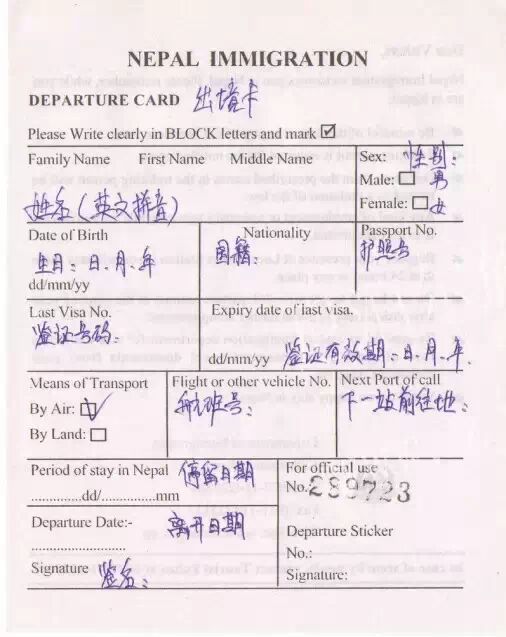 NEPAL IMMIGRATION
DEPARTURE CARD 出境卡
Please Write clearly in BLOCK letters and mark ☑
Family Name First Name Middle Name
姓名(英文拼音)
Sex: 性别:
Male: 男
Female: 女
Date of Birth
生日:日.月.年
dd/mm/yy
Nationality
国籍:
Passport No.
护照号
Last Visa No.
签证号码:
Expiry date of last visa.
dd/mm/yy 签证有效期:日.月.年.
Means of Transport
By Air: ☑
By Land:
Flight or other vehicle No.
航班号:
Next Port of call
下一站前往地:
Period of stay in Nepal 停留日期
..............dd/..............mm
For official use
No. 289723
Departure Date:- 离开日期
........................
Signature 签名:
Departure Sticker
No.:
Signature: